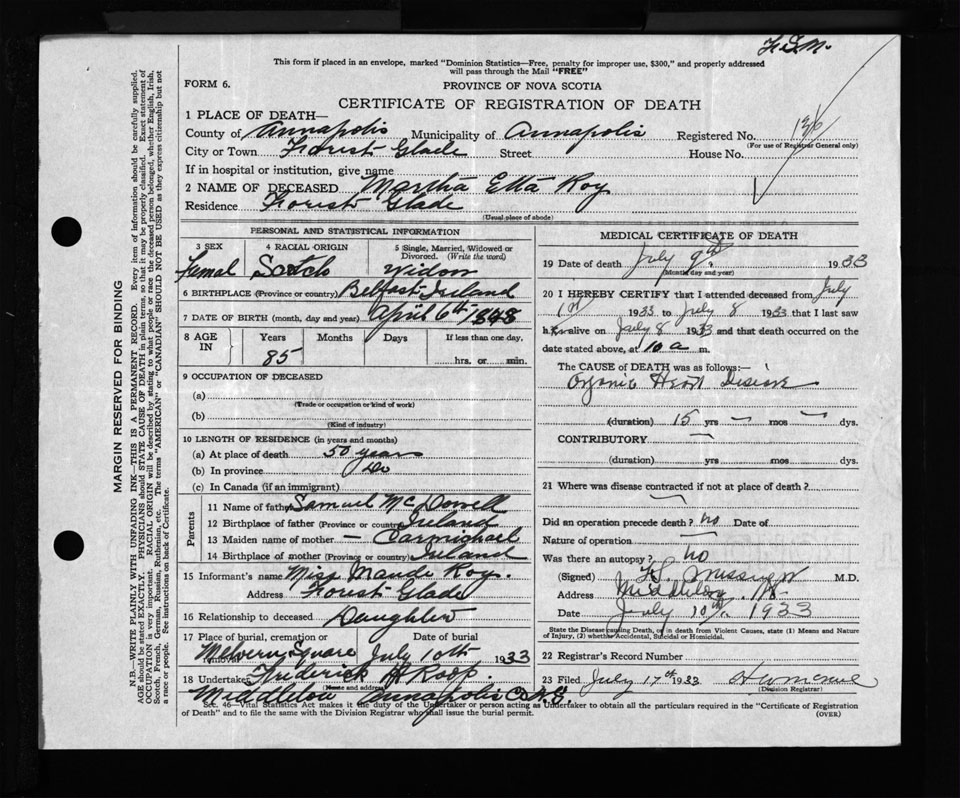 F.S.M.
This form if placed in an envelope, marked "Dominion Statistics—Free, penalty for improper use, $300," and properly addressed
will pass through the Mail "FREE"
FORM 6.
PROVINCE OF NOVA SCOTIA
CERTIFICATE OF REGISTRATION OF DEATH
1 PLACE OF DEATH—
County of Annapolis Municipality of Annapolis Registered No. 136
(For use of Registrar General only)
City or Town Forest Glade Street House No.
If in hospital or institution, give name
2 NAME OF DECEASED Martha Etta Roy
Residence Forest Glade
(Usual place of abode)
PERSONAL AND STATISTICAL INFORMATION
3 SEX 4 RACIAL ORIGIN 5 Single, Married, Widowed or Divorced. (Write the word)
Femal Scotch Widow
6 BIRTHPLACE (Province or country) Belfast Ireland
7 DATE OF BIRTH (month, day and year) April 6th 1848
8 AGE IN Years Months Days If less than one day,
85 hrs. or min.
9 OCCUPATION OF DECEASED
(a)
(Trade or occupation or kind of work)
(b)
(Kind of industry)
10 LENGTH OF RESIDENCE (in years and months)
(a) At place of death 50 years
(b) In province Do
(c) In Canada (if an immigrant)
Parents
11 Name of father Samuel McDowell
12 Birthplace of father (Province or country) Ireland
13 Maiden name of mother — Carmichael
14 Birthplace of mother (Province or country) Ireland
15 Informant's name Miss Maude Roy.
Address Forest Glade
16 Relationship to deceased Daughter
17 Place of burial, cremation or Date of burial
Melvern Square July 10th 1933
18 Undertaker Frederick H Roop.
(Name and address)
Middleton Annapolis Co N.S.
MEDICAL CERTIFICATE OF DEATH
19 Date of death July 9th 1933
(Month day and year)
20 I HEREBY CERTIFY that I attended deceased from July
1st 1933 to July 8 1933 that I last saw
her alive on July 8 1933 and that death occurred on
date stated above, at 10 a m.
The CAUSE of DEATH was as follows:—
Organic Heart Disease
(duration) 15 yrs — mos — dys.
CONTRIBUTORY —
(duration) yrs mos dys.
21 Where was disease contracted if not at place of death?
—
Did an operation precede death? no Date of
Nature of operation —
Was there an autopsy? no
(Signed) M.D.
Address Middleton N.S.
Date July 10th 1933
State the Disease causing Death, or in death from Violent Causes, state (1) Means and Nature
of Injury, (2) whether Accidental, Suicidal or Homicidal.
22 Registrar's Record Number
23 Filed July 17th 1933
(Division Registrar)
Sec. 46—Vital Statistics Act makes it the duty of the Undertaker or person acting as Undertaker to obtain all the particulars required in the "Certificate of Registration
of Death" and to file the same with the Division Registrar who shall issue the burial permit.
(OVER)
MARGIN RESERVED FOR BINDING
N.B.—WRITE PLAINLY WITH UNFADING INK—THIS IS A PERMANENT RECORD. Every item of information should be carefully supplied.
AGE should be stated EXACTLY. PHYSICIANS should STATE CAUSE OF DEATH in plain terms, so that it may be properly classified. Exact statement of
OCCUPATION is very important. RACIAL ORIGIN will be described by stating to what people or race the deceased person belonged, whether English, Irish,
Scotch, French, German, Russian, Ruthenian, etc. The terms "AMERICAN" or "CANADIAN" SHOULD NOT BE USED as they express citizenship but not
a race or people. See instructions on back of Certificate.